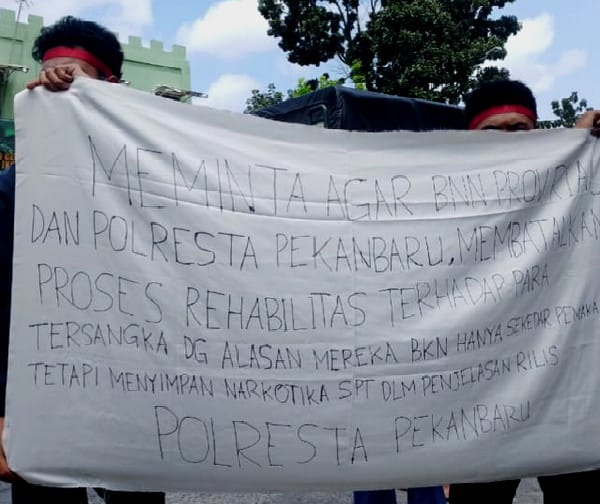 MEMINTA AGAR BNN PROV RIAU
DAN POLRESTA PEKANBARU, MEMBATALKAN
PROSES REHABILITAS TERHADAP PARA
TERSANGKA DG ALASAN MEREKA BKN HANYA SEKEDAR PEMAKA
TETAPI MENYIMPAN NARKOTIKA SPT DLM PENJELASAN RILIS
POLRESTA PEKANBARU